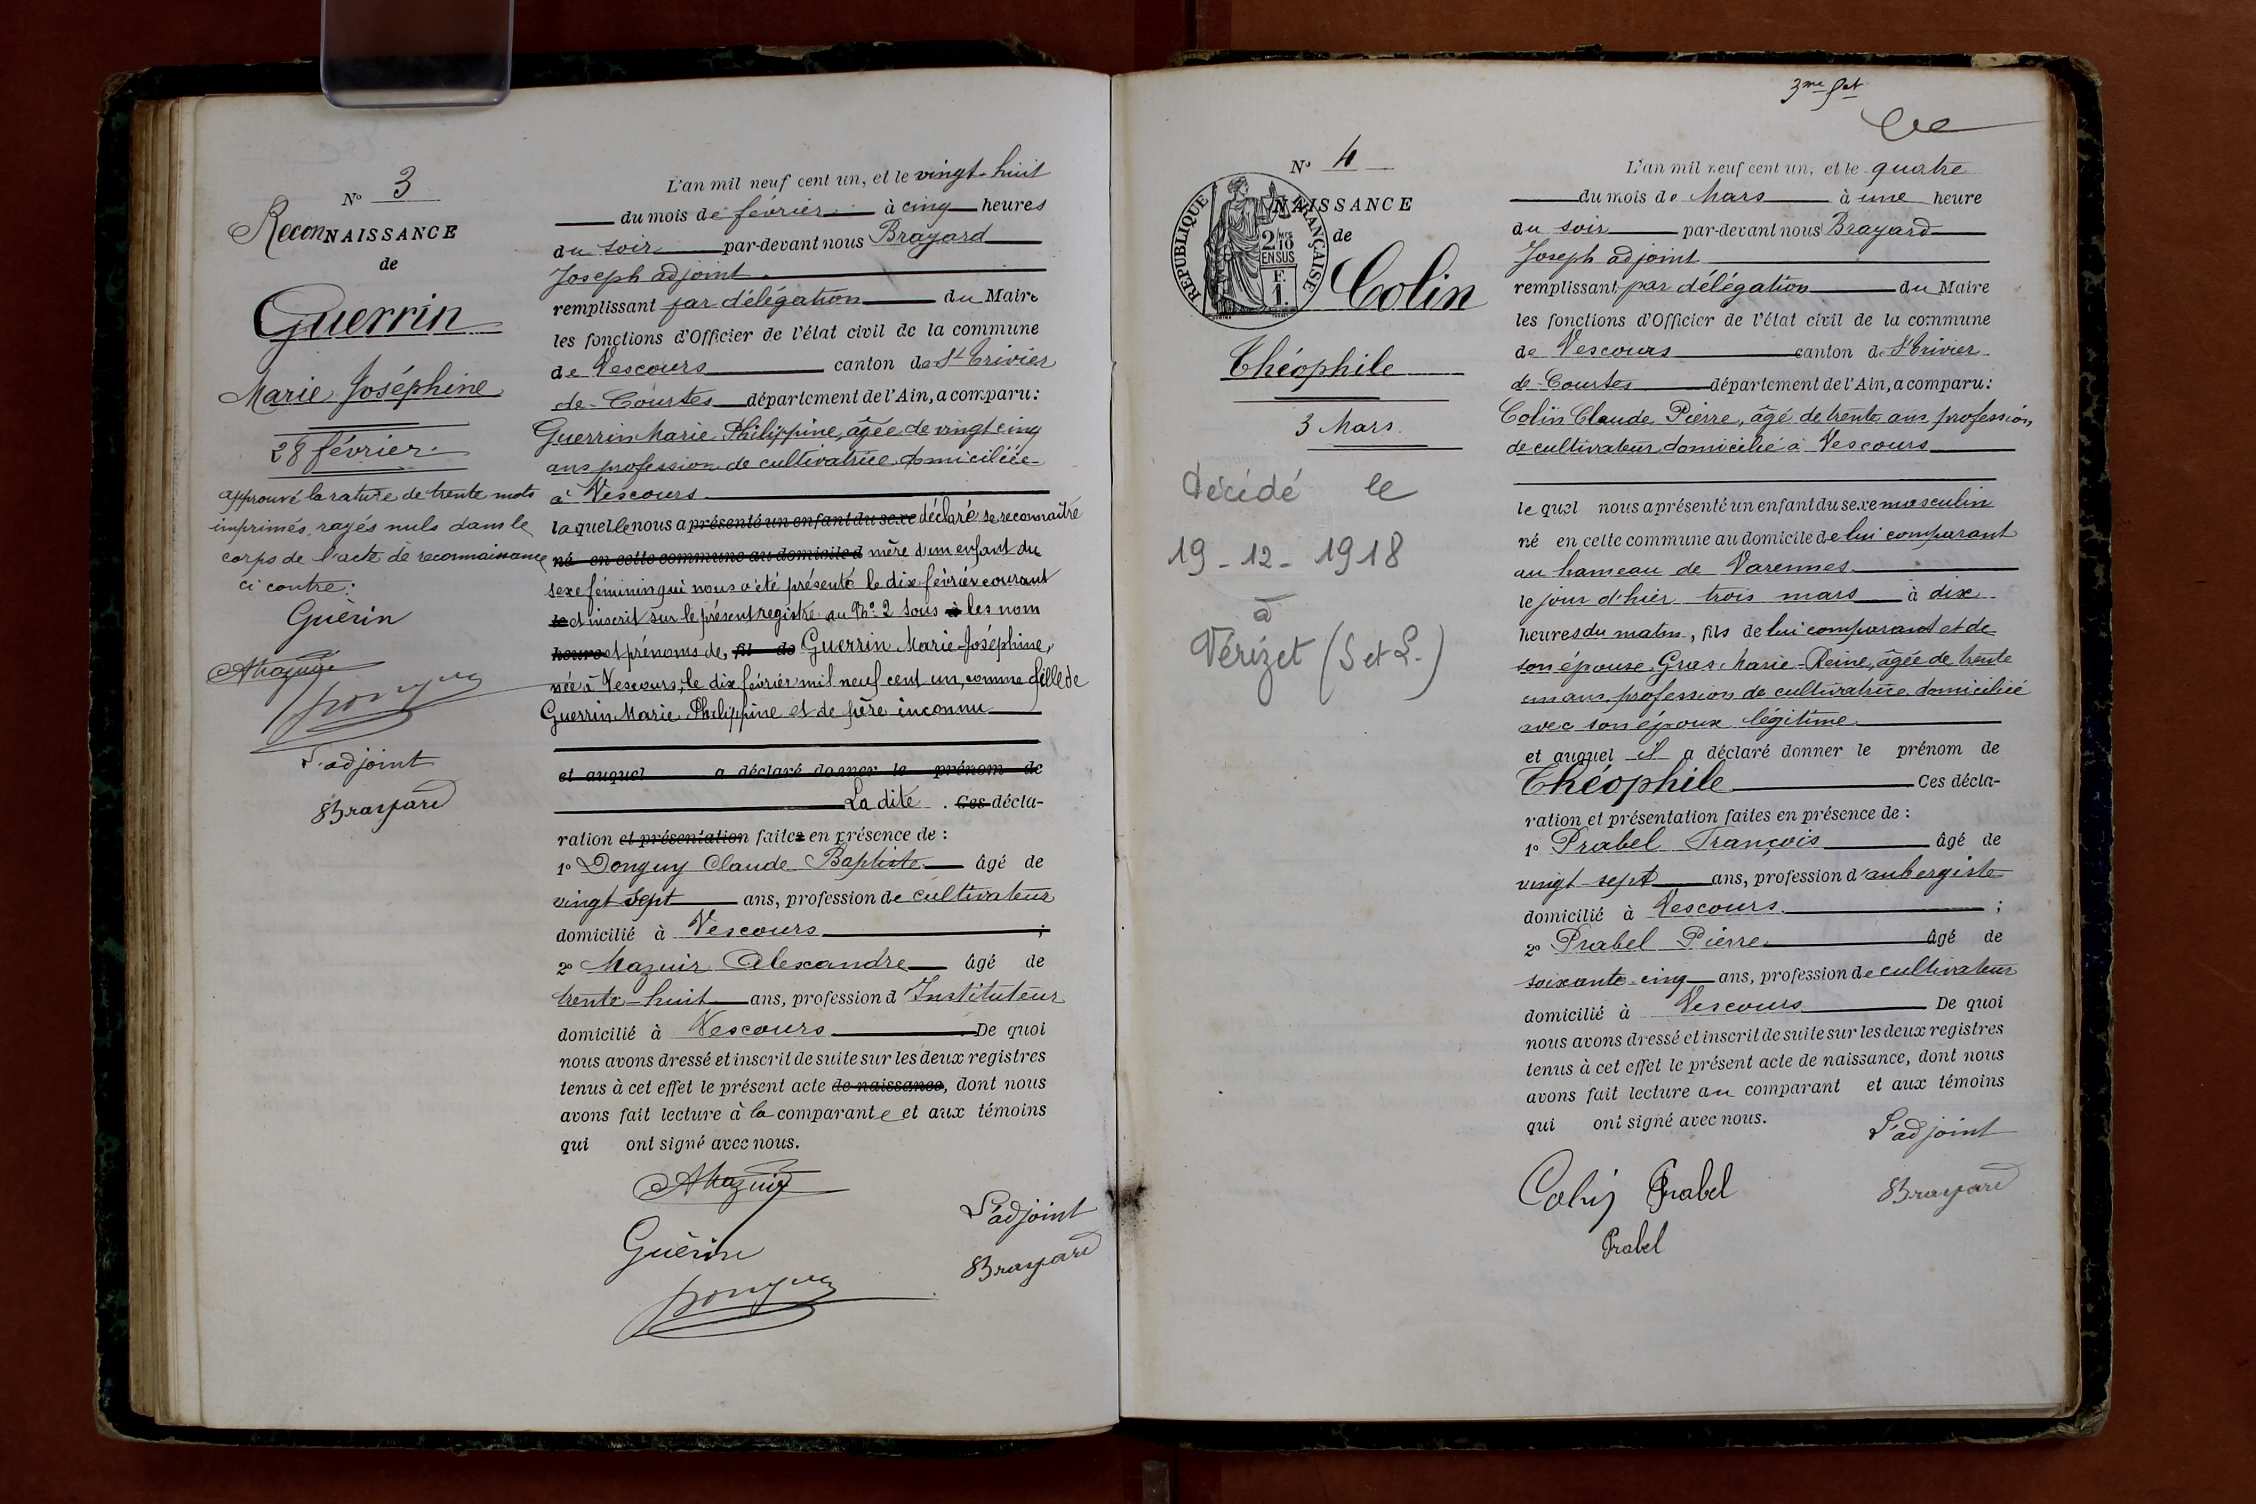 N° 3
ReconNAISSANCE
de
Guerrin
Marie Joséphine
28 février
approuvé la rature de trente mots
imprimés, rayés nuls dans le
corps de l'acte de reconnaissance
ci contre:
Guérin
AMazuir
Donguy
L'adjoint
Brayard
L'an mil neuf cent un, et le vingt-huit
du mois de février à cinq heures
du soir par-devant nous Brayard
Joseph adjoint
remplissant par délégation du Maire
les fonctions d'Officier de l'état civil de la commune
de Vescours canton de St Trivier
de-Courtes département de l'Ain, a comparu:
Guerrin Marie Philippine, âgée de vingt cinq
ans profession de cultivatrice domiciliée
à Vescours
laquelle nous a présenté un enfant du sexe déclaré se reconnaître
né en cette commune au domicile d mère d'un enfant du
sexe féminin qui nous a été présenté le dix février courant
le et inscrit sur le présent registre au N° 2 sous à les nom
heure et prénoms de, fil de Guerrin Marie-Joséphine,
née à Vescours, le dix février mil neuf cent un, comme fille de
Guerrin Marie Philippine et de père inconnu
et auquel a déclaré donner le prénom de
La dite . Ces décla-
ration et présentation faites en présence de :
1° Donguy Claude Baptiste âgé de
vingt sept ans, profession de cultivateur
domicilié à Vescours ;
2° Mazuir Alexandre âgé de
trente-huit ans, profession d'Instituteur
domicilié à Vescours De quoi
nous avons dressé et inscrit de suite sur les deux registres
tenus à cet effet le présent acte de naissance, dont nous
avons fait lecture à la comparante et aux témoins
qui ont signé avec nous.
AMazuir
L'adjoint
Guérin
Brayard
Donguy
3me
N° 4
NAISSANCE
de
REPUBLIQUE FRANÇAISE
2/10
EN SUS
F.
1.
Colin
Théophile
3 Mars
Décédé le
19-12-1918
à
Vérizet (S et L.)
L'an mil neuf cent un, et le quatre
du mois de Mars à une heure
du soir par-devant nous Brayard
Joseph adjoint
remplissant par délégation du Maire
les fonctions d'Officier de l'état civil de la commune
de Vescours canton de St Trivier
de-Courtes département de l'Ain, a comparu:
Colin Claude Pierre, âgé de trente ans profession
de cultivateur domicilié à Vescours
le quel nous a présenté un enfant du sexe masculin
né en cette commune au domicile de lui comparant
au hameau de Varennes
le jour d'hier trois mars à dix
heures du matin, fils de lui comparant et de
son épouse, Gras Marie-Reine, âgée de trente
un ans, profession de cultivatrice domiciliée
avec son époux légitime
et auquel il a déclaré donner le prénom de
Théophile Ces décla-
ration et présentation faites en présence de :
1° Prabel François âgé de
vingt sept ans, profession d'aubergiste
domicilié à Vescours ;
2° Prabel Pierre âgé de
soixante-cinq ans, profession de cultivateur
domicilié à Vescours De quoi
nous avons dressé et inscrit de suite sur les deux registres
tenus à cet effet le présent acte de naissance, dont nous
avons fait lecture au comparant et aux témoins
qui ont signé avec nous.
L'adjoint
Colin Prabel Brayard
Prabel